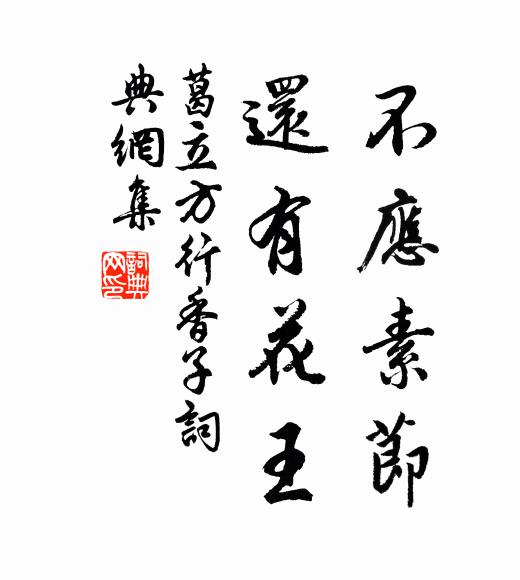 不應素節
還有花王
葛立方行香子詞
典網集
詞典網印